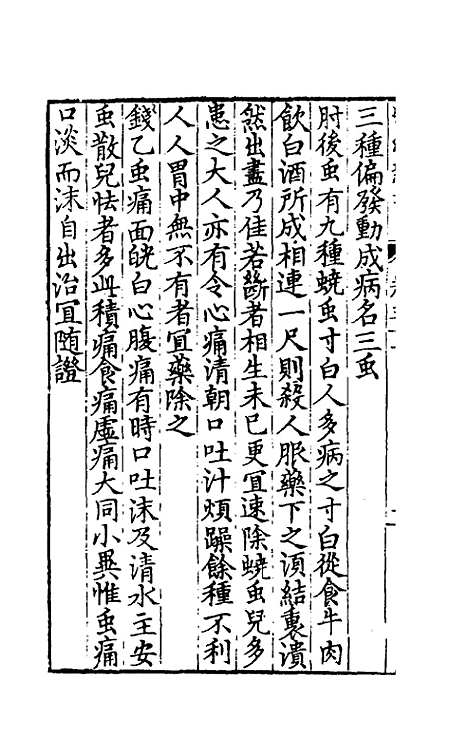 三種偏發動成病名三虫
肘後虫有九種蟯虫寸白人多病之寸白從食牛肉
飲白酒所成相連一尺則殺人服藥下之須結裹潰
然出盡乃佳若斷者相生未已更宜速除蟯虫兒多
患之大人亦有令心痛清朝口吐汁煩躁餘種不利
人人胃中無不有者宜藥除之
錢乙虫痛面㿠白心腹痛有時口吐沫及清水主安
虫散兒怯者多此積痛食痛虛痛大同小異惟虫痛
口淡而沫自出治宜随證